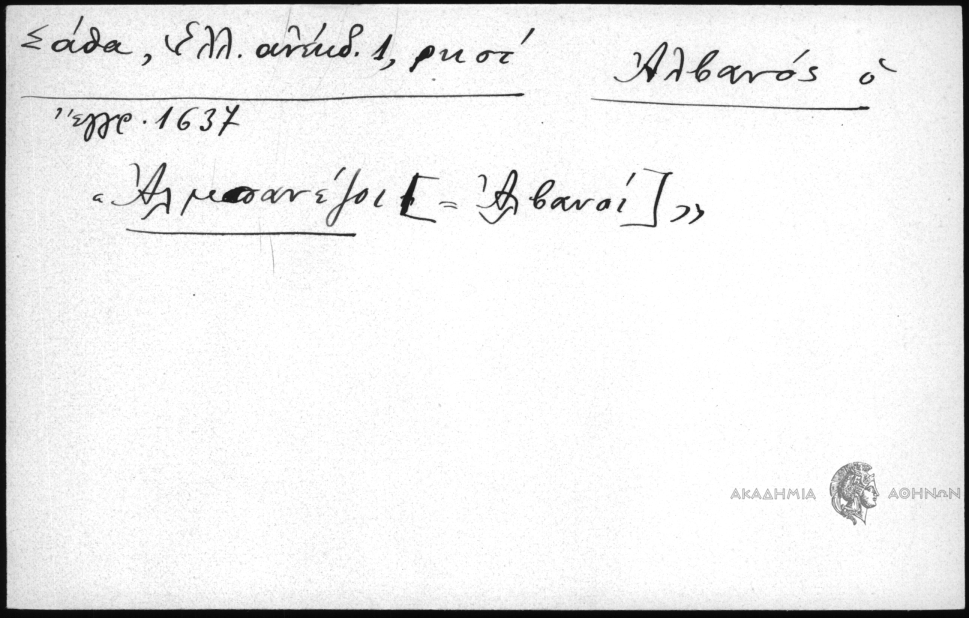 Σάθα, Ἑλλ. ἀνέκδ. 1, ρκστ́
Ἀλβανός ὁ
Ἔγγρ. 1637
«Ἀλμπανέζοι [= Ἀλβανοί]»
ΑΚΑΔΗΜΙΑ ΑΘΗΝΩΝ